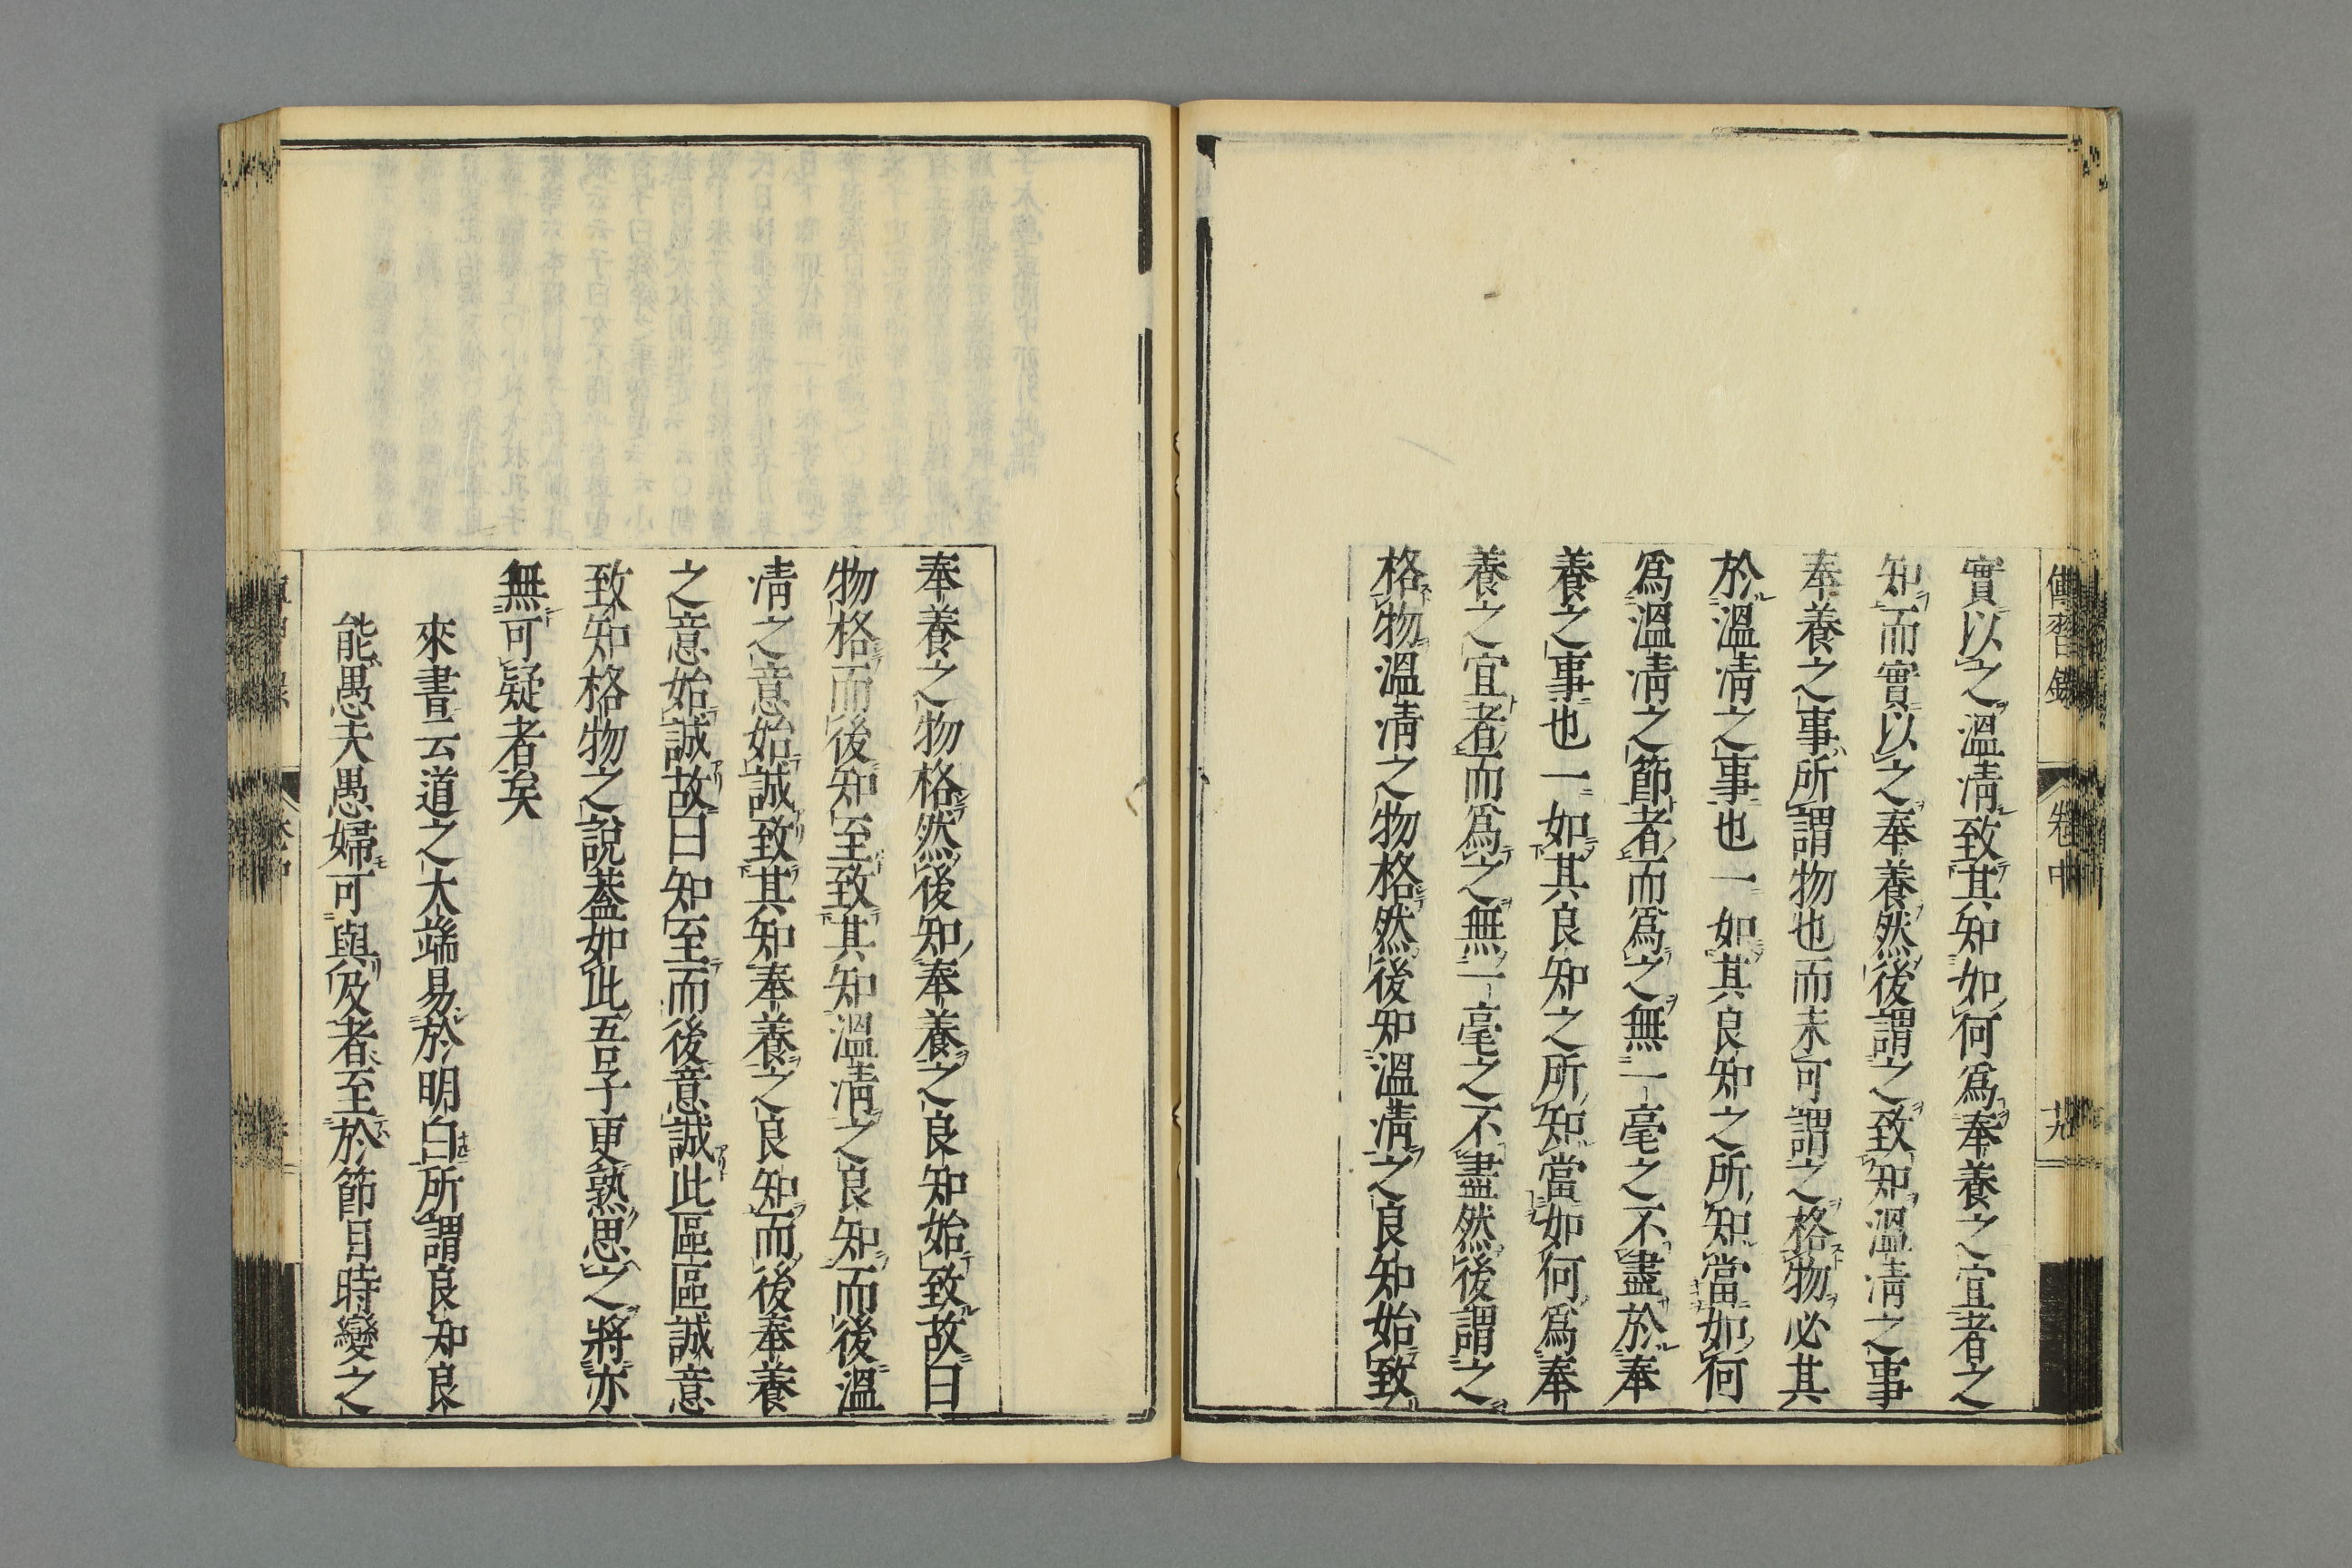 傳習録 卷中 十九
實以之溫凊致其知如何爲奉養之宜者之
知而實以之奉養然後謂之致知溫凊之事
奉養之事所謂物也而未可謂之格物必其
於溫凊之事也一如其良知之所知當如何
爲溫凊之節者而爲之無一毫之不盡於奉
養之事也一如其良知之所知當如何爲奉
養之宜者而爲之無一毫之不盡然後謂之
格物溫凊之物格然後知溫凊之良知始致
奉養之物格然後知奉養之良知始致故曰
物格而後知至致其知溫凊之良知而後溫
凊之意始誠致其知奉養之良知而後奉養
之意始誠故曰知至而後意誠此區區誠意
致知格物之說蓋如此吾子更熟思之將亦
無可疑者矣
來書云道之大端易於明白所謂良知良
能愚夫愚婦可與及者至於節目時變之